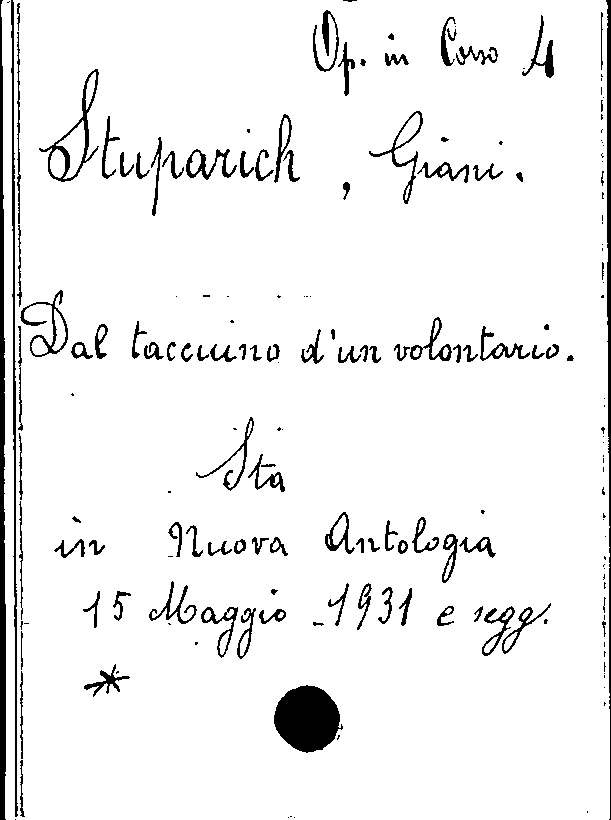 Op. in Corso 4
Stuparich, Giani.
Dal taccuino d'un volontario.
Sta
in Nuova Antologia
15 Maggio 1931 e segg.
*